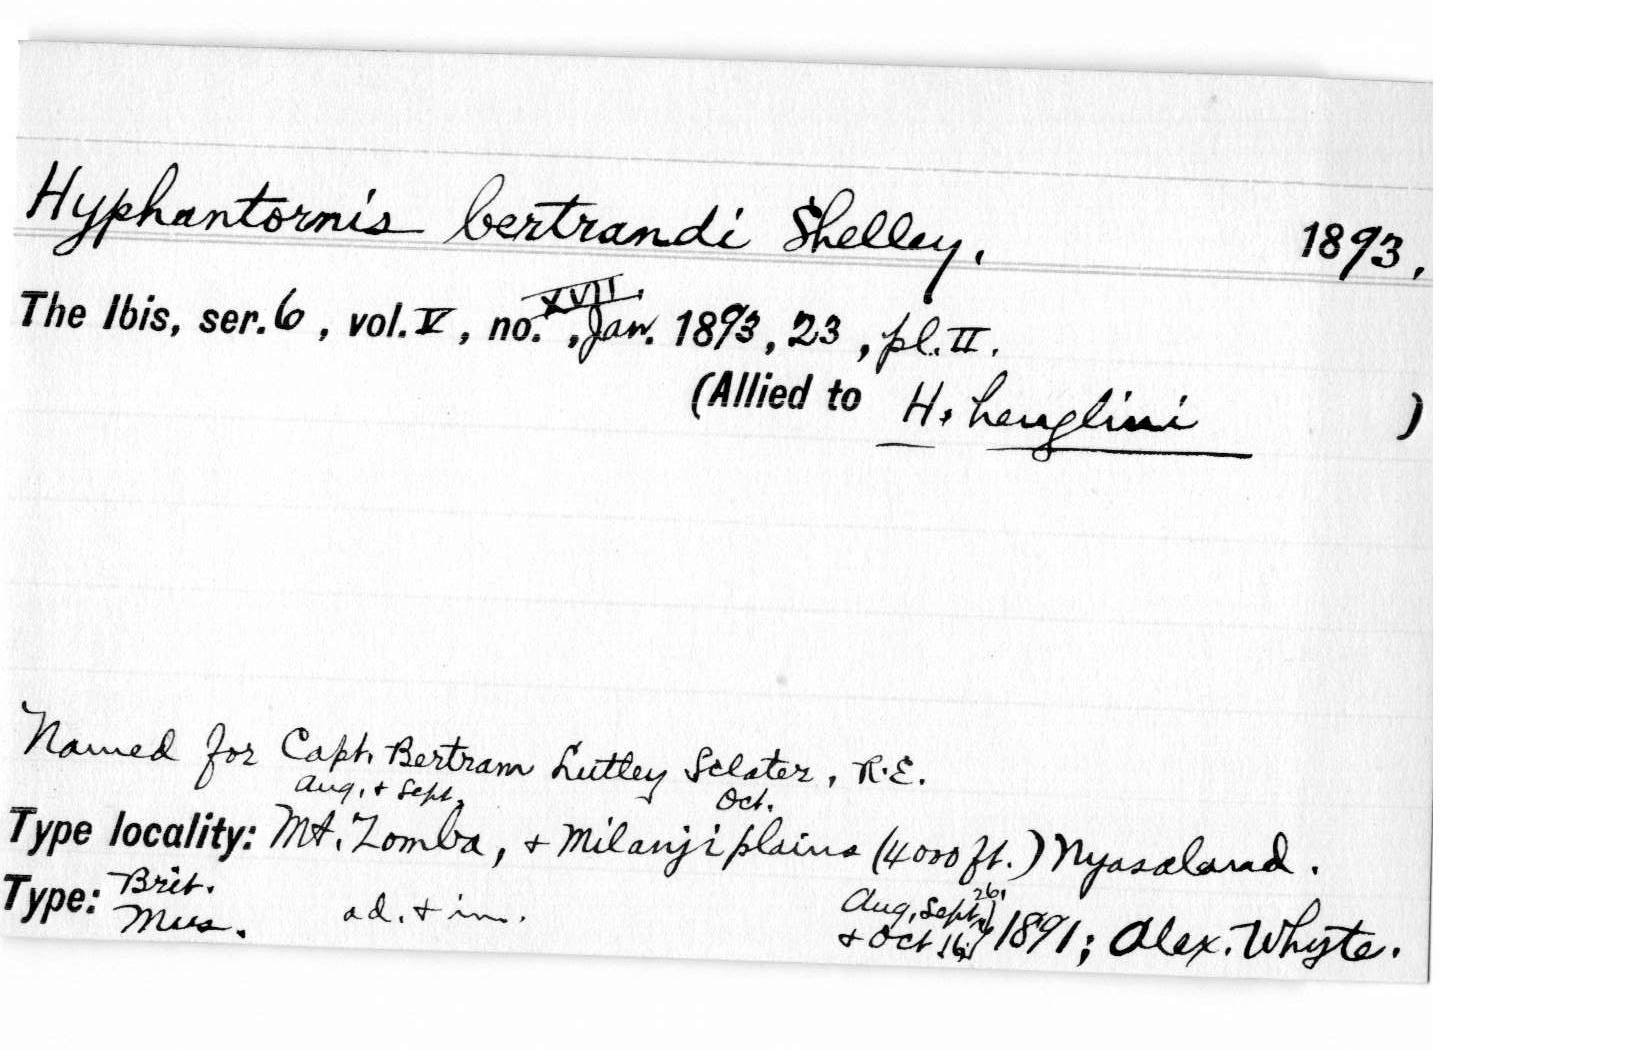 Hyphantornis bertrandi Shelley, 1893.
The Ibis, ser. 6, vol. V, no. XVII, Jan. 1893, 23, pl. II.
(Allied to H. heuglini )
Named for Capt. Bertram Lutley Sclater, R.E.
Aug. + Sept. Oct.
Type locality: Mt. Zomba, + Milanji plains (4000 ft.) Nyasaland.
Type: Brit. Mus. ad. + im. Aug, Sept. 26, + Oct 16, 1891; Alex. Whyte.